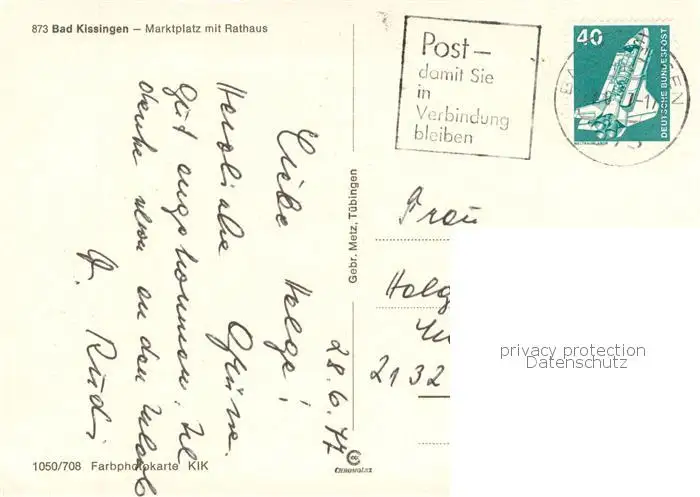 873 Bad Kissingen – Marktplatz mit Rathaus
Post –
damit Sie
in
Verbindung
bleiben
40
DEUTSCHE BUNDESPOST
28.6.77
Liebe Helga!
Herzliche Grüße.
Gut angekommen. Ich
denke schon an den Urlaub
Rudi
Gebr. Metz, Tübingen
Frau
Helg
2132
privacy protection
Datenschutz
1050/708 Farbphotokarte KIK